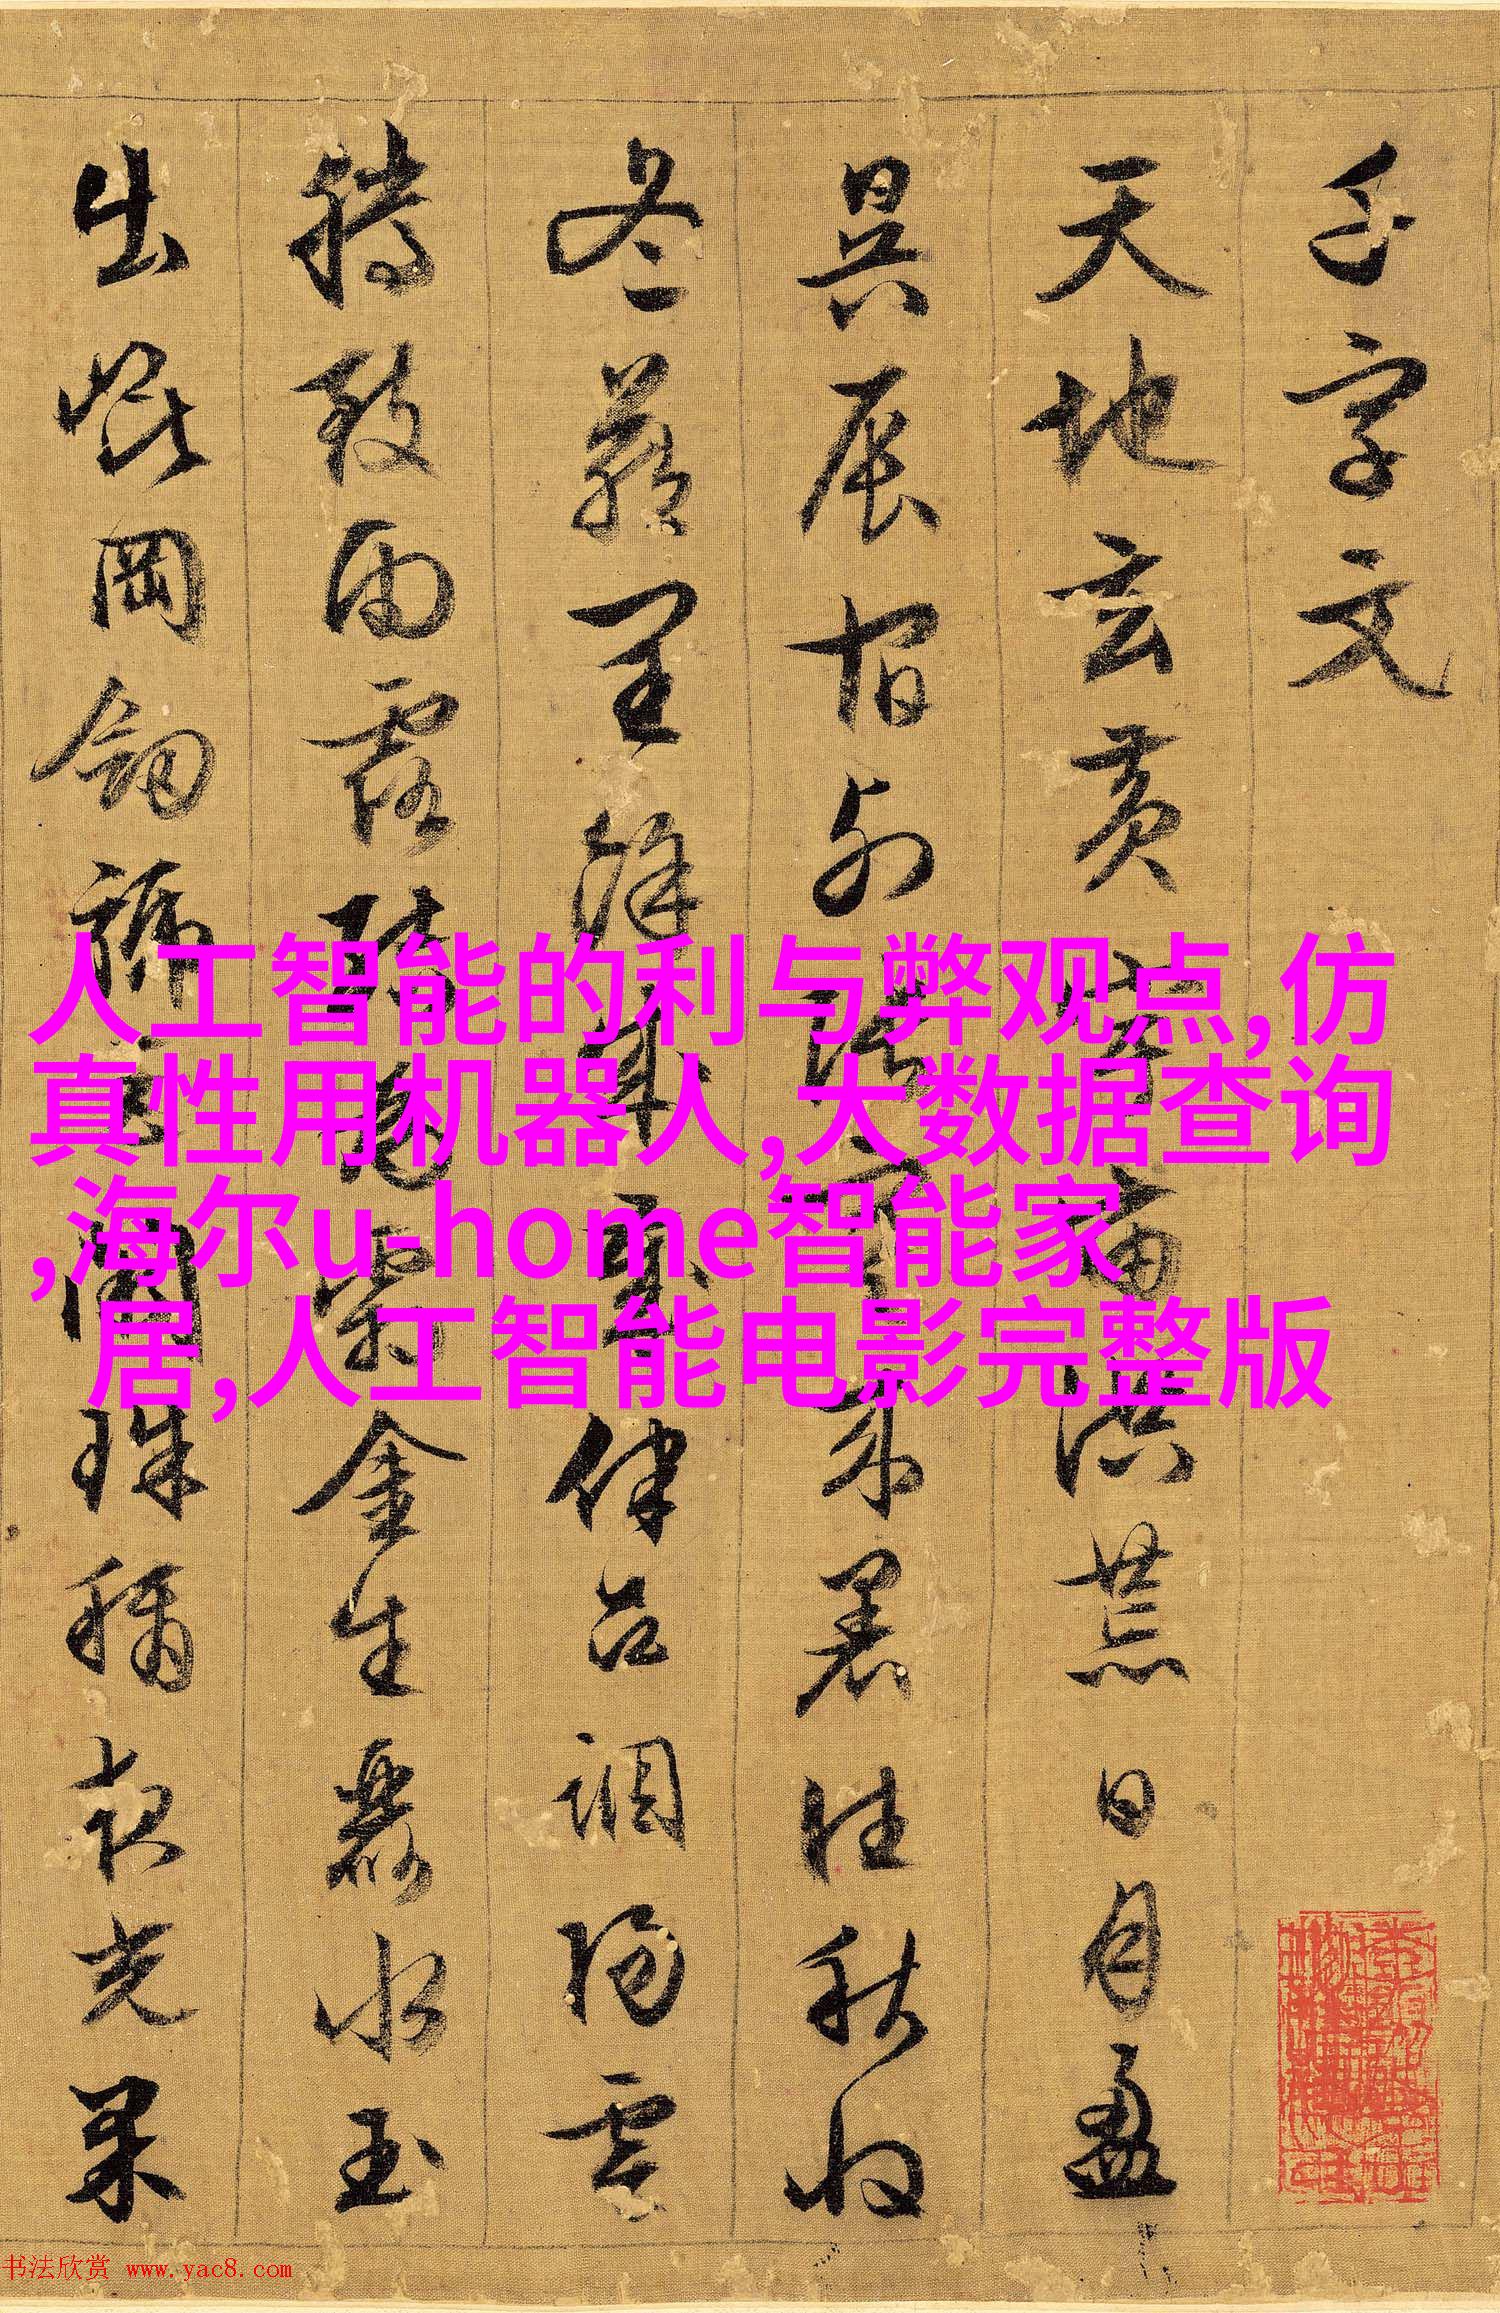 千字文
天地玄黄宇宙洪荒日月盈
昃辰宿列張寒来暑往秋收
冬藏閏餘成歲律吕調陽雲
騰致雨露結為霜金生麗水玉
出崐岡劒號巨闕珠稱夜光果
人工智能的利与弊观点,仿
真性用机器人,大数据查询
,海尔u-home智能家
居,人工智能电影完整版
书法欣赏 www.yac8.com